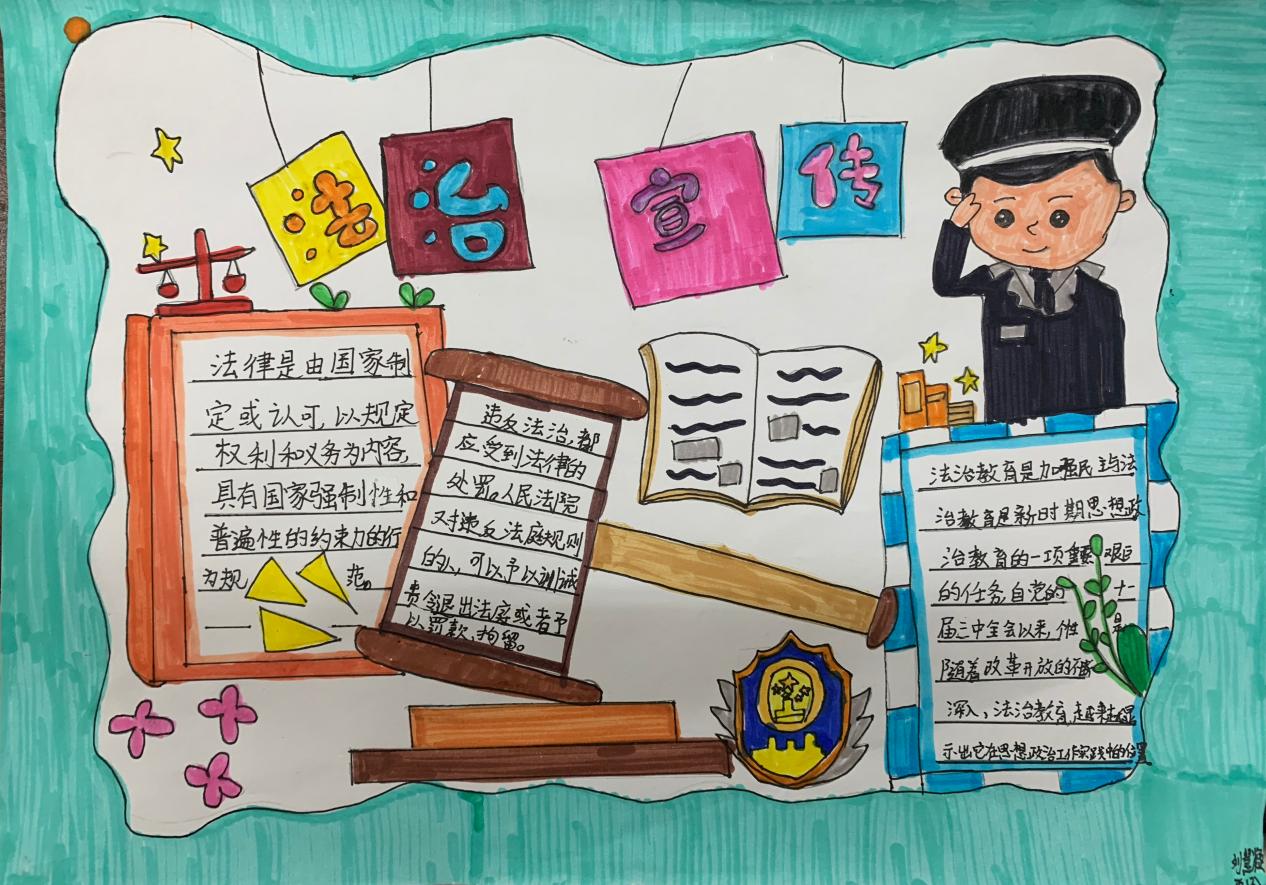 法治宣传
法律是由国家制
定或认可,以规定
权利和义务为内容,
具有国家强制性和
普遍性的约束力的行
为规范。
违反法治,都
应受到法律的
处罚。人民法院
对违反法庭规则
的人,可以予以训诫
责令退出法庭或者予
以罚款、拘留。
法治教育是加强民主与法
治教育是新时期思想政
治教育的一项重要 艰巨
的任务自党的 十一
届三中全会以来,
随着改革开放的不断
深入,法治教育,越来越显
示出它在思想政治工作